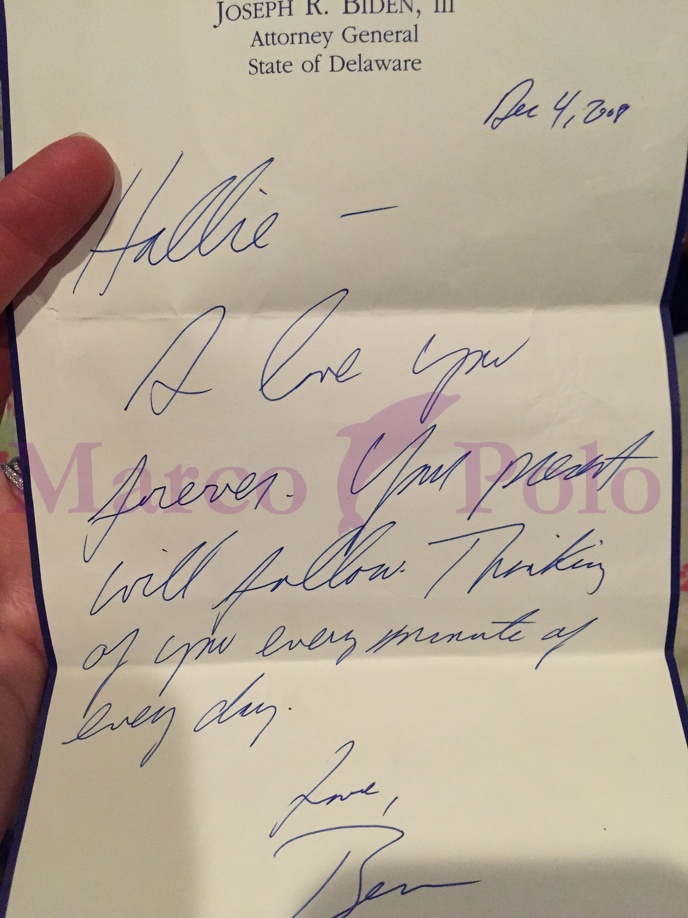 JOSEPH R. BIDEN, III
Attorney General
State of Delaware
Dec 4, 2009
Hallie —
I love you
forever. Your present
will follow. Thinking
of you every minute of
every day.
Love,
Beau
Marco Polo